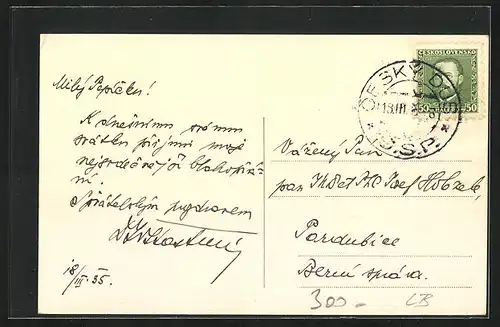 Milý Pepíčku!
K dnešnímu
svátku přijmi moje
nejsrdečnější blahopřá-
ní.
S přátelským pozdravem
18/III. 35.
ČESKOSLOVENSKO
50 50
ČESKÝ
18.III
Č.S.P.
Vážený Pan
pan Josef
Pardubice
Berní správa.
300 -